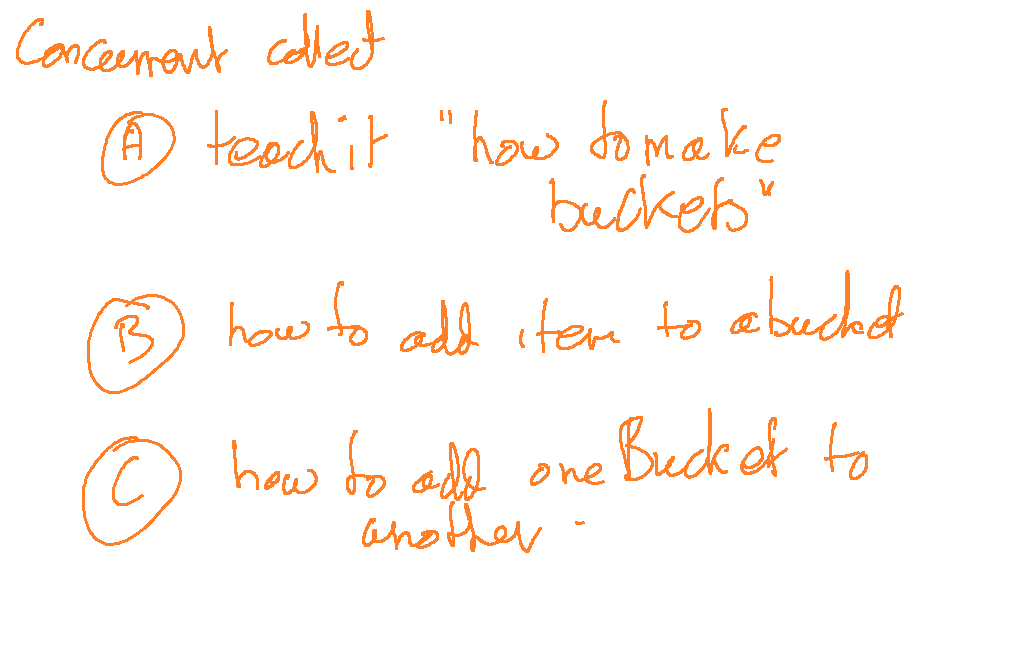 Concurrent collect
A teach it "how to make
buckets"
B how to add item to a bucket
C how to add one Bucket to
another.